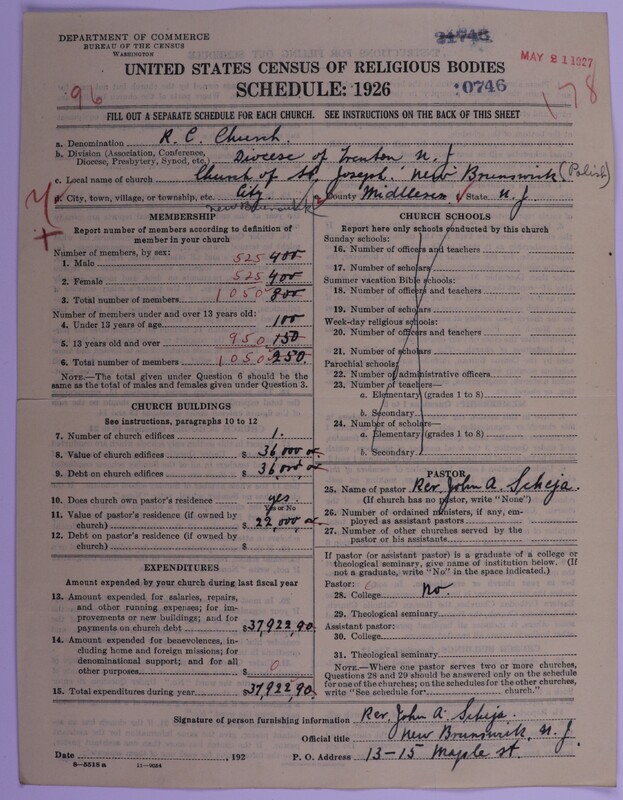 DEPARTMENT OF COMMERCE
BUREAU OF THE CENSUS
WASHINGTON
21746
MAY 21 1927
UNITED STATES CENSUS OF RELIGIOUS BODIES
SCHEDULE: 1926
0746
96
178
FILL OUT A SEPARATE SCHEDULE FOR EACH CHURCH. SEE INSTRUCTIONS ON THE BACK OF THIS SHEET
a. Denomination R. C. Church.
b. Division (Association, Conference, Diocese, Presbytery, Synod, etc.) Diocese of Trenton N. J
c. Local name of church Church of St. Joseph. New Brunswick (Polish)
d. City, town, village, or township, etc. City. New Brunswick County Middlesex State N. J.
MEMBERSHIP
Report number of members according to definition of member in your church
Number of members, by sex:
1. Male 525 400
2. Female 525 400
3. Total number of members 1050 800
Number of members under and over 13 years old:
4. Under 13 years of age 100
5. 13 years old and over 950 150
6. Total number of members 1050 250
NOTE.—The total given under Question 6 should be the same as the total of males and females given under Question 3.
CHURCH BUILDINGS
See instructions, paragraphs 10 to 12
7. Number of church edifices 1.
8. Value of church edifices $ 36,000 00
9. Debt on church edifices $ 36,000, 00
10. Does church own pastor's residence yes
Yes or No
11. Value of pastor's residence (if owned by church) $ 22,000 00
12. Debt on pastor's residence (if owned by church) $
EXPENDITURES
Amount expended by your church during last fiscal year
13. Amount expended for salaries, repairs, and other running expenses; for improvements or new buildings; and for payments on church debt $ 37,922,90
14. Amount expended for benevolences, including home and foreign missions; for denominational support; and for all other purposes $ 0
15. Total expenditures during year $ 37,922 90
CHURCH SCHOOLS
Report here only schools conducted by this church
Sunday schools:
16. Number of officers and teachers
17. Number of scholars
Summer vacation Bible schools:
18. Number of officers and teachers
19. Number of scholars
Week-day religious schools:
20. Number of officers and teachers
21. Number of scholars
Parochial schools:
22. Number of administrative officers
23. Number of teachers—
a. Elementary (grades 1 to 8)
b. Secondary
24. Number of scholars—
a. Elementary (grades 1 to 8)
b. Secondary
PASTOR
25. Name of pastor Rev. John A. Scheja.
(If church has no pastor, write "None")
26. Number of ordained ministers, if any, employed as assistant pastors
27. Number of other churches served by the pastor or his assistants
If pastor (or assistant pastor) is a graduate of a college or theological seminary, give name of institution below. (If not a graduate, write "No" in the space indicated.)
Pastor:
28. College no.
29. Theological seminary
Assistant pastor:
30. College
31. Theological seminary
NOTE.—Where one pastor serves two or more churches, Questions 28 and 29 should be answered only on the schedule for one of the churches; on the schedules for the other churches, write "See schedule for church."
Signature of person furnishing information Rev. John A. Scheja.
Official title New Brunswick, N. J.
Date , 192 P. O. Address 13-15 Maple st.
8—5518 a 11—9064